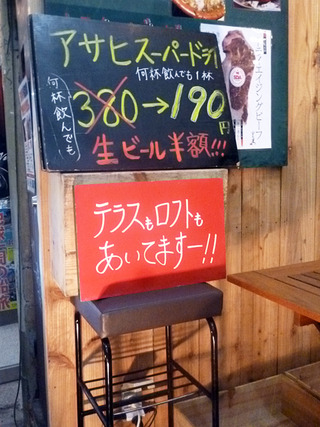 アサヒスーパードライ
何杯飲んでも1杯
何杯飲んでも
380→190円
生ビール半額!!!
テラスもロフトも
あいてますー!!